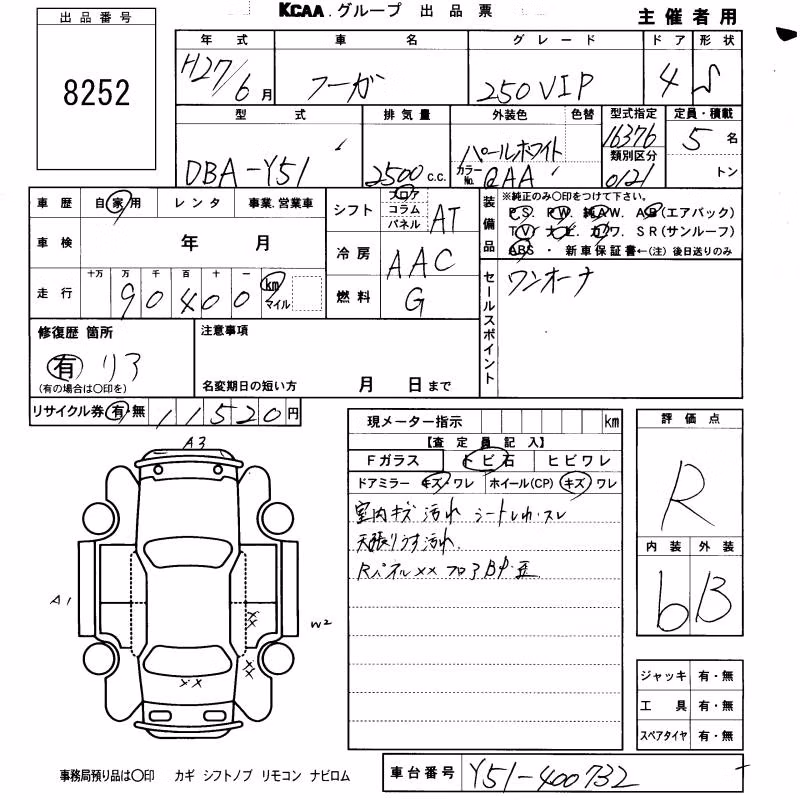 KCAA.グループ 出品票
主催者用
出品番号
8252
年式 車名 グレード ドア 形状
H27/6月 フーガ 250VIP 4 S
型式 排気量 外装色 色替 型式指定 定員・積載
DBA-Y51 2500c.c. パールホワイト 16376 5名
カラーNo. QAA 類別区分 0121 トン
車歴 自家用 レンタ 事業.営業車
車検 年 月
走行 十万 万 千 百 十 一
90400 km マイル
シフト フロア コラム パネル AT
冷房 AAC
燃料 G
装備品 ※純正のみ〇印をつけて下さい。
P.S. P.W. 純AW. AB(エアバック)
TV 本土 カワ. SR(サンルーフ)
ABS ・ 新車保証書←(注) 後日送りのみ
セールスポイント ワンオーナ
修復歴 箇所
有 リア
(有の場合は〇印を)
注意事項
名変期日の短い方 月 日まで
リサイクル券 有・無 11520円
現メーター指示 km
【査定員記入】
Fガラス トビ石 ヒビワレ
ドアミラー キズ・ワレ ホイール(CP) キズ ワレ
室内キズ 汚れ シートしわ・スレ
天張りうす汚れ.
Rパネル×× フロアBP・歪
評価点
R
内装 外装
6 B
A3
A1
W2
××
××
××
ジャッキ 有・無
工具 有・無
スペアタイヤ 有・無
事務局預り品は〇印 カギ シフトノブ リモコン ナビロム
車台番号 Y51-400732